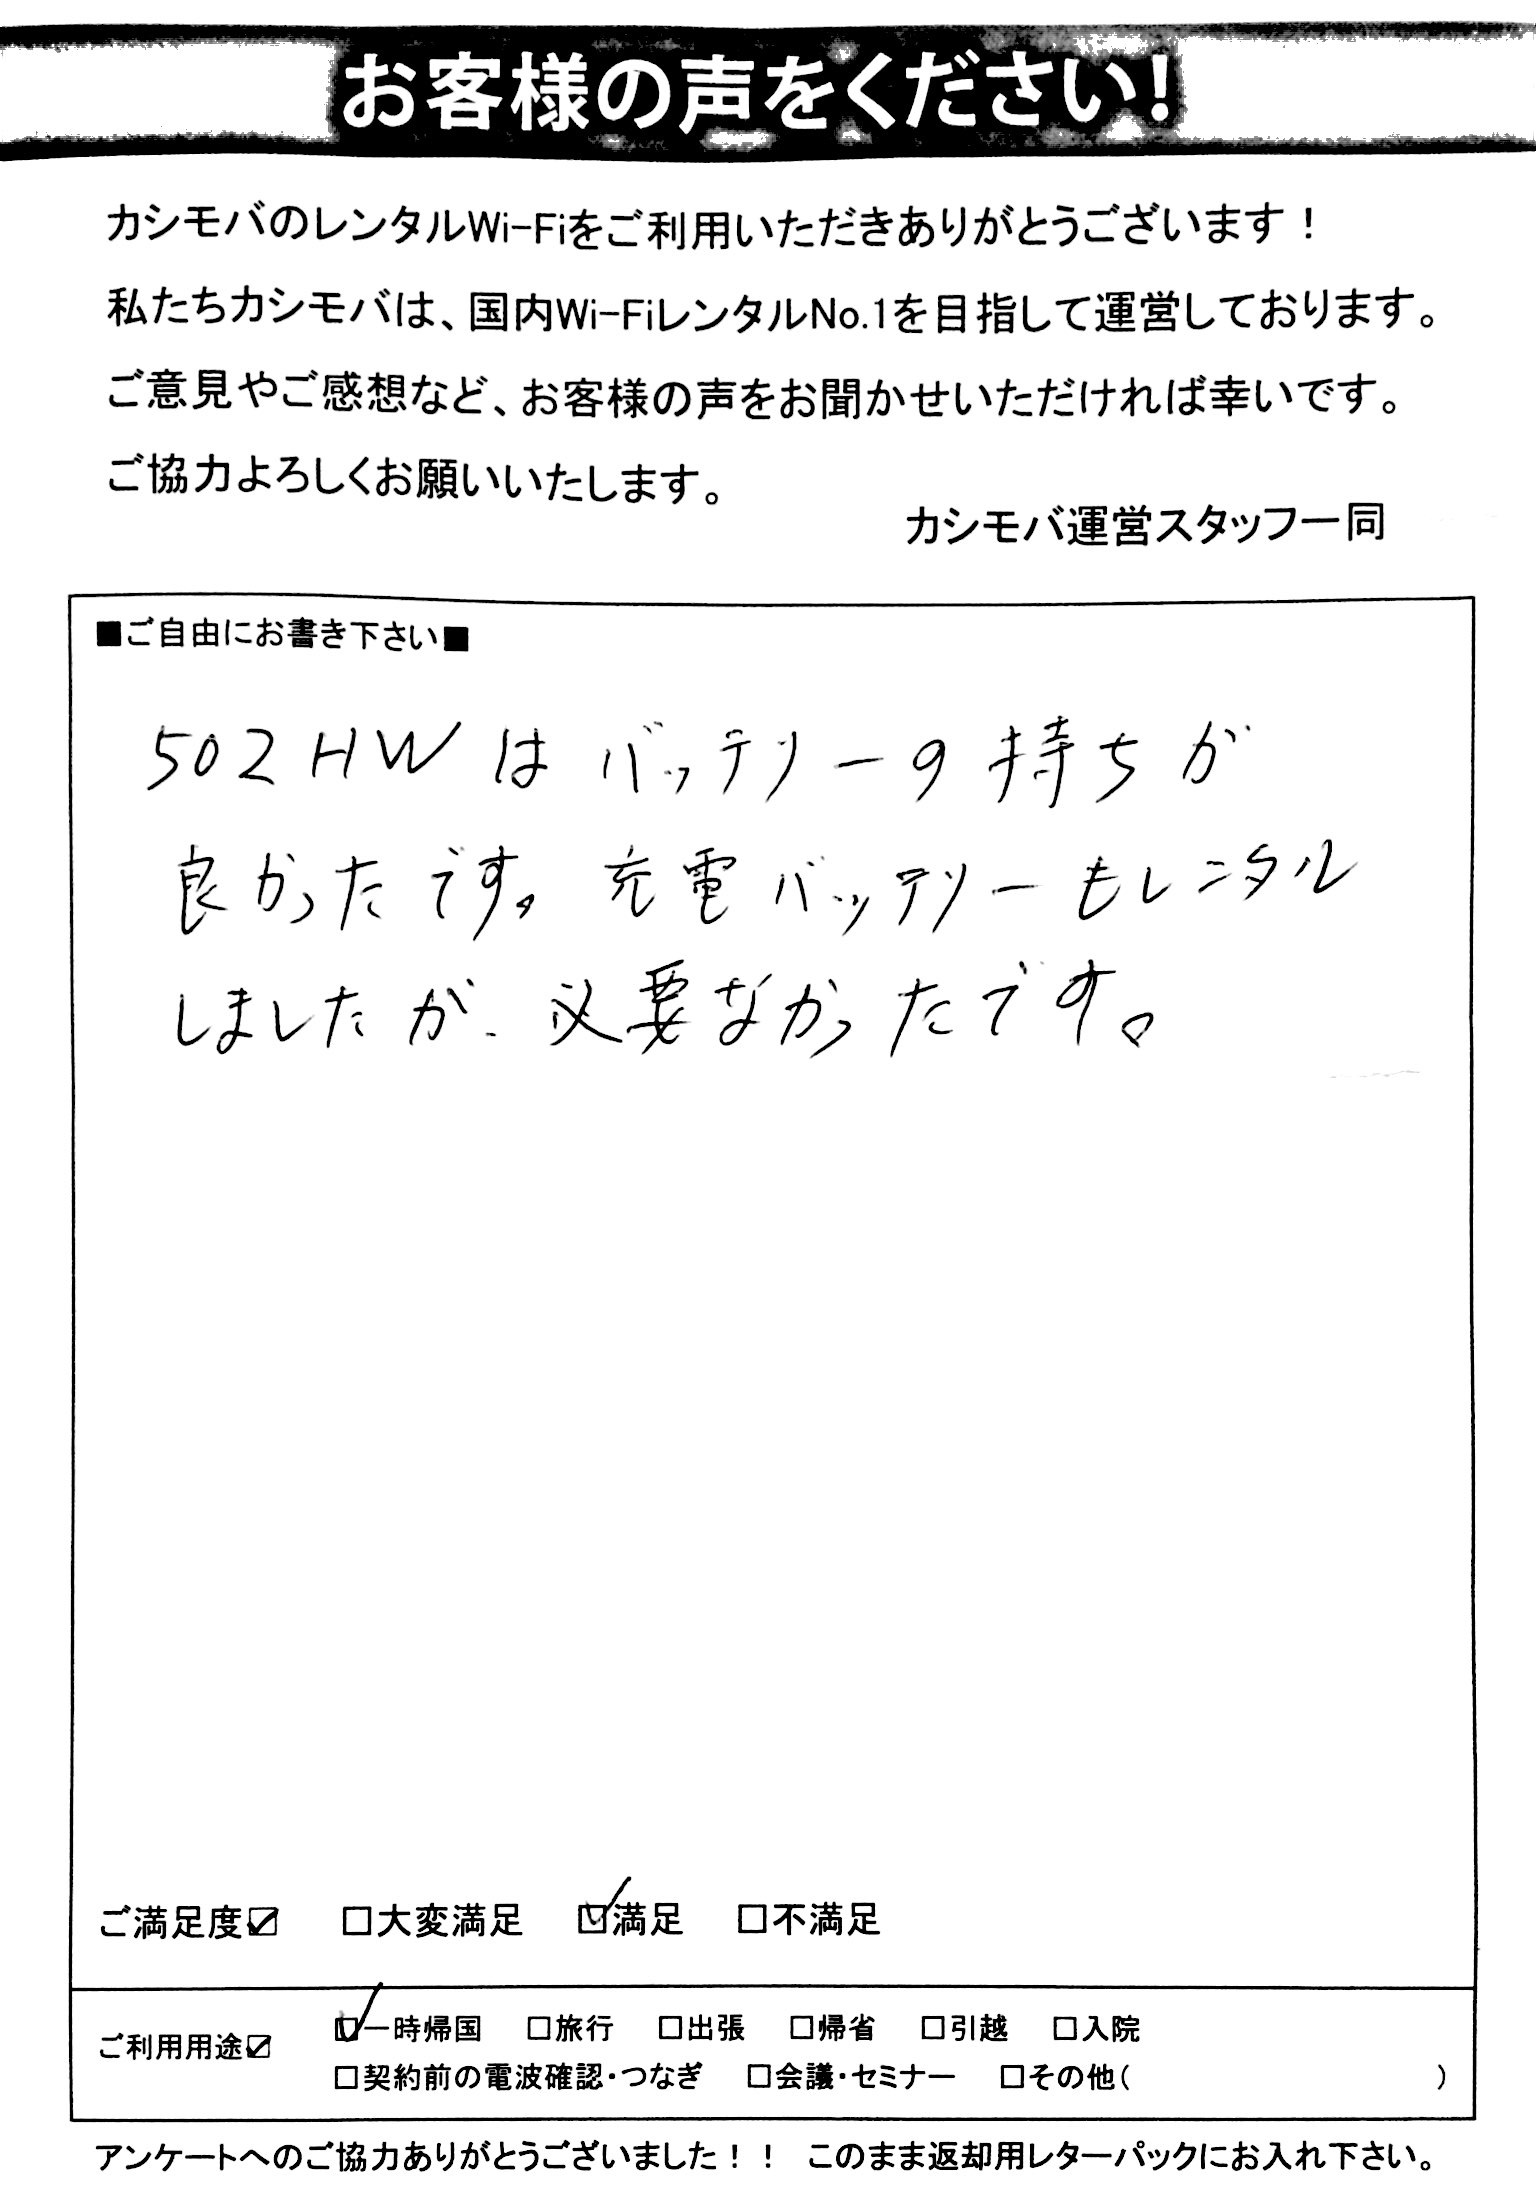 お客様の声をください!
カシモバのレンタルWi-Fiをご利用いただきありがとうございます！
私たちカシモバは、国内Wi-FiレンタルNo.1を目指して運営しております。
ご意見やご感想など、お客様の声をお聞かせいただければ幸いです。
ご協力よろしくお願いいたします。
カシモバ運営スタッフ一同
■ご自由にお書き下さい■
502HWはバッテリーの持ちが
良かったです。充電バッテリーもレンタル
しましたが、必要なかったです。
ご満足度☑ □大変満足 ☑満足 □不満足
ご利用用途☑ ☑一時帰国 □旅行 □出張 □帰省 □引越 □入院
□契約前の電波確認・つなぎ □会議・セミナー □その他( )
アンケートへのご協力ありがとうございました！！ このまま返却用レターパックにお入れ下さい。